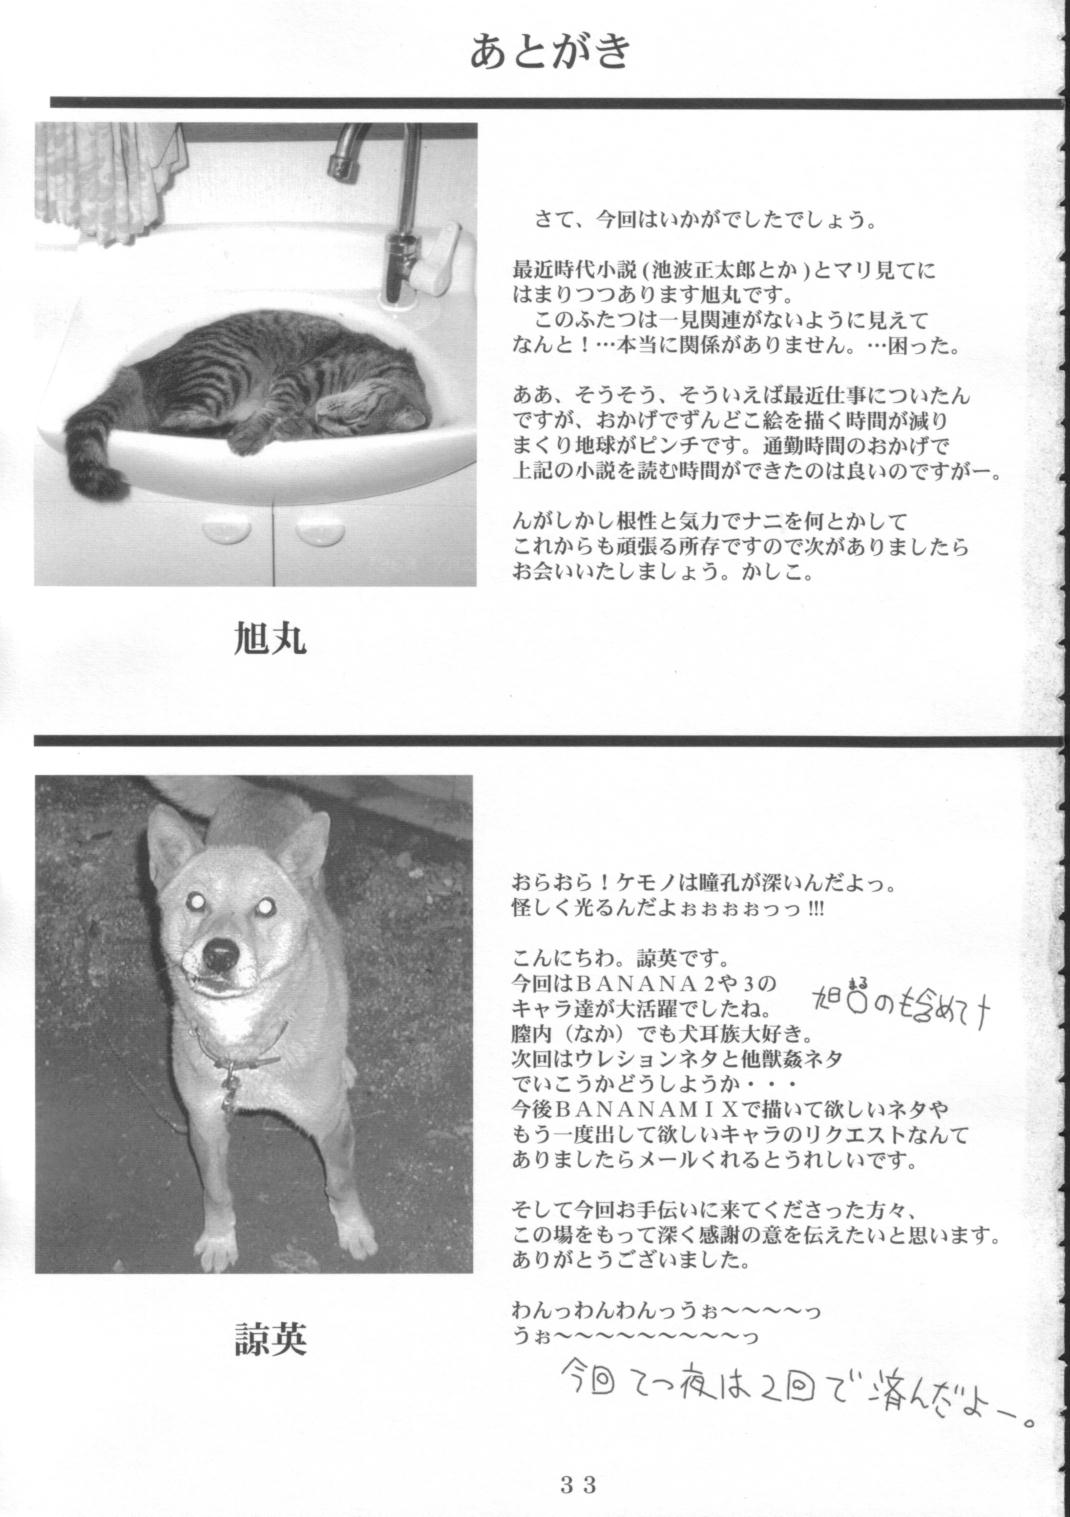 あとがき
さて、今回はいかがでしたでしょう。
最近時代小説(池波正太郎とか)とマリ見てに
はまりつつあります旭丸です。
このふたつは一見関連がないように見えて
なんと！…本当に関係がありません。…困った。
ああ、そうそう、そういえば最近仕事についたん
ですが、おかげでずんどこ絵を描く時間が減り
まくり地球がピンチです。通勤時間のおかげで
上記の小説を読む時間ができたのは良いのですがー。
んがしかし根性と気力でナニを何とかして
これからも頑張る所存ですので次がありましたら
お会いいたしましょう。かしこ。
旭丸
おらおら！ケモノは瞳孔が深いんだよっ。
怪しく光るんだよぉぉぉぉっっ!!!
こんにちわ。諒英です。
今回はＢＡＮＡＮＡ２や３の
キャラ達が大活躍でしたね。
膣内（なか）でも犬耳族大好き。
次回はウレションネタと他獣姦ネタ
でいこうかどうしようか・・・
今後ＢＡＮＡＮＡＭＩＸで描いて欲しいネタや
もう一度出して欲しいキャラのリクエストなんて
ありましたらメールくれるとうれしいです。
そして今回お手伝いに来てくださった方々、
この場をもって深く感謝の意を伝えたいと思います。
ありがとうございました。
わんっわんわんっうぉ〜〜〜〜っ
うぉ〜〜〜〜〜〜〜〜〜っ
諒英
まる
のも含めて
今回てつ夜は2回で済んだよー。
３３